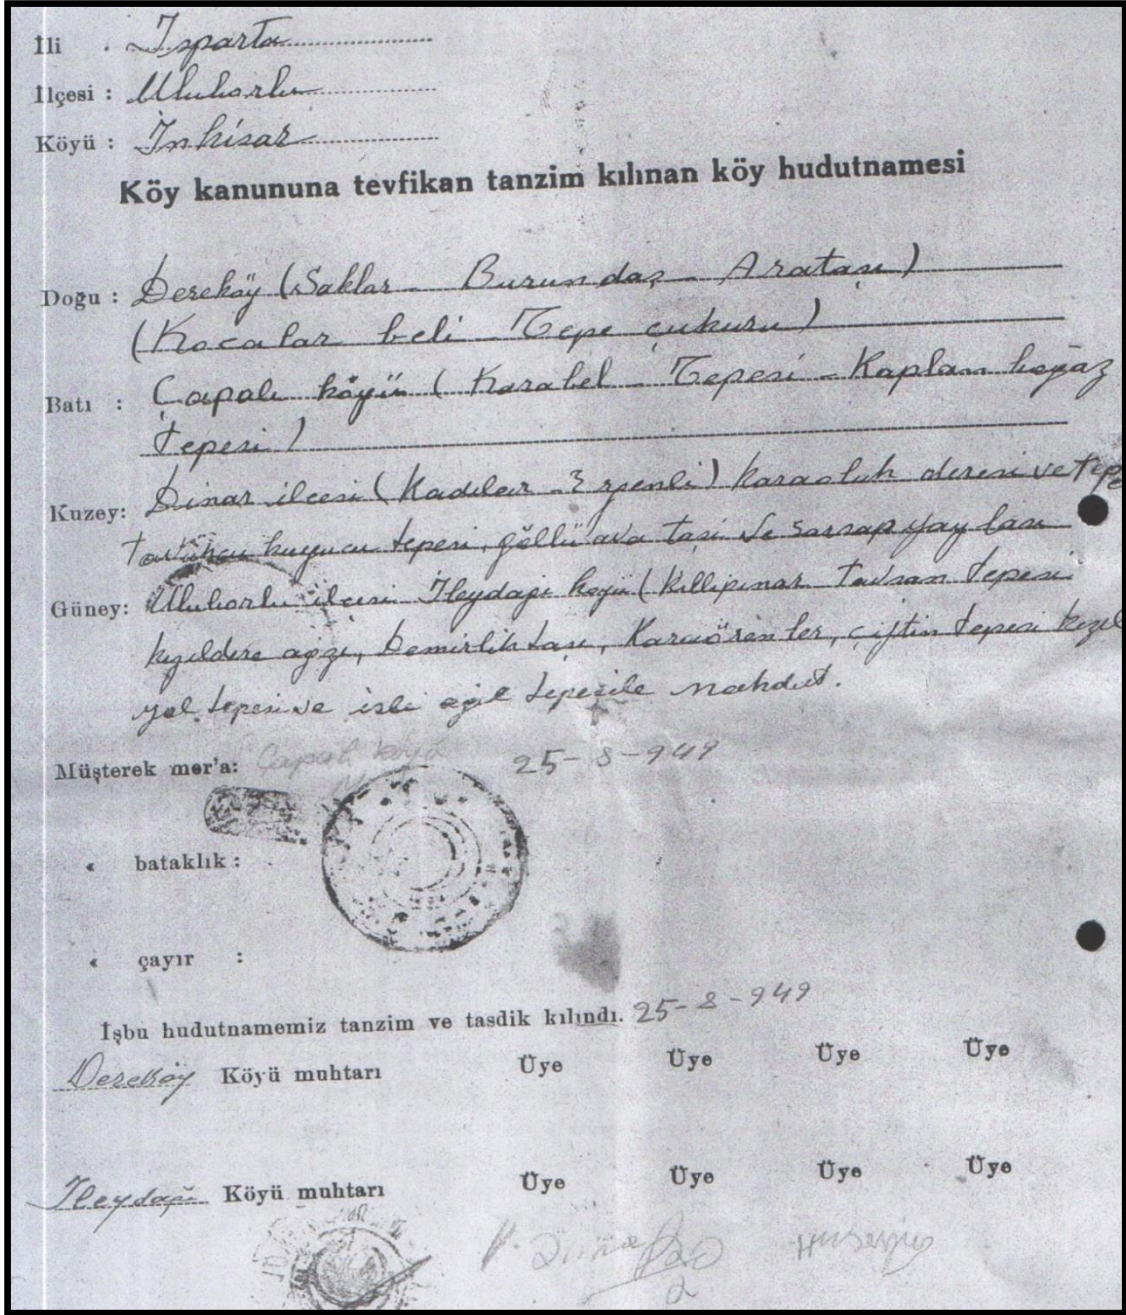 İli : Isparta
İlçesi : Uluborlu
Köyü : İnhisar
Köy kanununa tevfikan tanzim kılınan köy hudutnamesi
Doğu : Dereköy (Saklar - Burundaş - Arataşı)
(Kocalar beli - Tepe çukuru)
Batı : Çapalı köyü (Karabel - Tepesi - Kaplan boğaz
tepesi)
Kuzey: Dinar ilcesi (Kadılar - ) deresi ve tepe
kuyucu tepesi, göllü ova taşı ve yaylası
Güney: Uluborlu ilcesi İleydağı köyü (Killipınar Tavsan tepesi
kızıldere ağzı, Demirlik taşı, Karaörenler, çiftin tepesi kızıl
yol tepesi ve isli ağıl tepesile mahdut.
Müşterek mer'a: Çapalı köyü 25-8-949
« bataklık :
« çayır :
İşbu hudutnamemiz tanzim ve tasdik kılındı. 25-8-949
Dereköy Köyü muhtarı Üye Üye Üye Üye
İleydağı Köyü muhtarı Üye Üye Üye Üye
Hüseyin